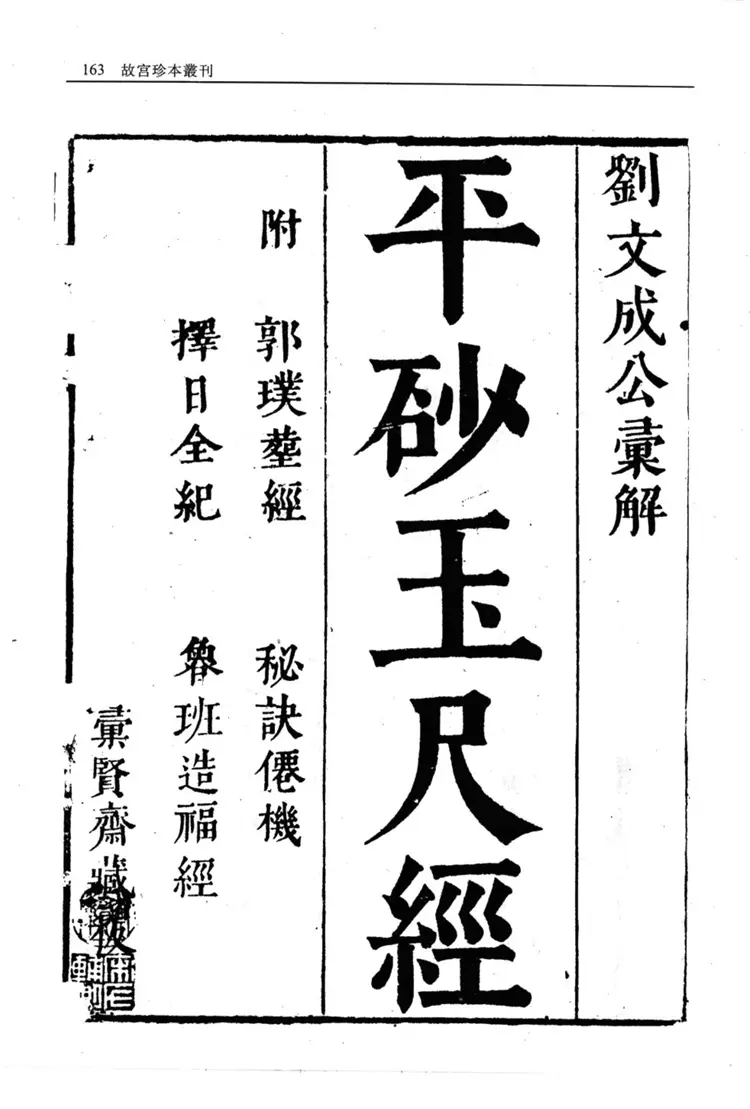 163 故宫珍本叢刊
劉文成公彙解
平砂玉尺經
附 郭璞塟經 秘訣僊機
擇日全紀 魯班造福經
彙賢齋藏板